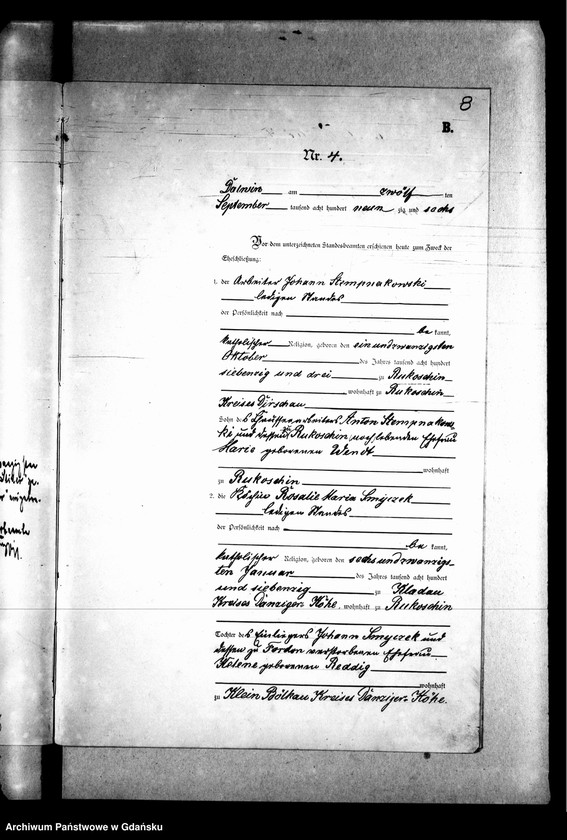 8
B.
Nr. 4.
Dalwin am zwölf ten
September tausend acht hundert neun zig und sechs
Vor dem unterzeichneten Standesbeamten erschienen heute zum Zweck der
Eheschließung:
1. der Arbeiter Johann Stempnakowski
ledigen Standes
der Persönlichkeit nach
be kannt,
katholischer Religion, geboren den einundzwanzigsten
Oktober des Jahres tausend acht hundert
siebenzig und drei zu Rukoschin
wohnhaft zu Rukoschin
Kreises Dirschau
Sohn des Chausseearbeiters Anton Stempnakows-
ki und dessen Rukoschin noch lebenden Ehefrau
Marie geborenen Wendt
wohnhaft
zu Rukoschin
2. die Köchin Rosalie Maria Smyczek
ledigen Standes
der Persönlichkeit nach
be kannt,
katholischer Religion, geboren den sechsundzwanzigs-
ten Januar des Jahres tausend acht hundert
und siebenzig zu Kladau
Kreises Danziger Höhe, wohnhaft zu Rukoschin
Tochter des Einliegers Johann Smyczek und
dessen zu Fordon verstorbenen Ehefrau
Helene geborenen Reddig
wohnhaft
zu Klein Bölkau Kreises Danziger Höhe.
Archiwum Państwowe w Gdańsku